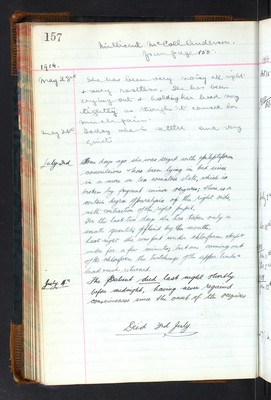 157
Millicent McColl Anderson.
from page 155.
1914.
May 23rd She has been very noisy all night
& very restless. She has been
crying out & holding her head very
tightly as though it caused her
much pain.
May 24th Today she is settled and very
quiet.
July 3rd days ago she was seized with epileptiform
convulsions & has been lying in bed since
in a more or less comatose state, which is
broken by frequent minor seizures; there is a
certain degree of paralysis of the right side,
with contraction of the right pupil.
For the last two days she has taken only a
small quantity of fluid by the mouth.
Last night she was put under chloroform
for a few minutes, but on coming out
of the chloroform the twitchings of the upper limbs &
head much returned.
July 4th The Patient died last night shortly
before midnight, having never regained
consciousness since the onset of the seizures
Died 3rd July.